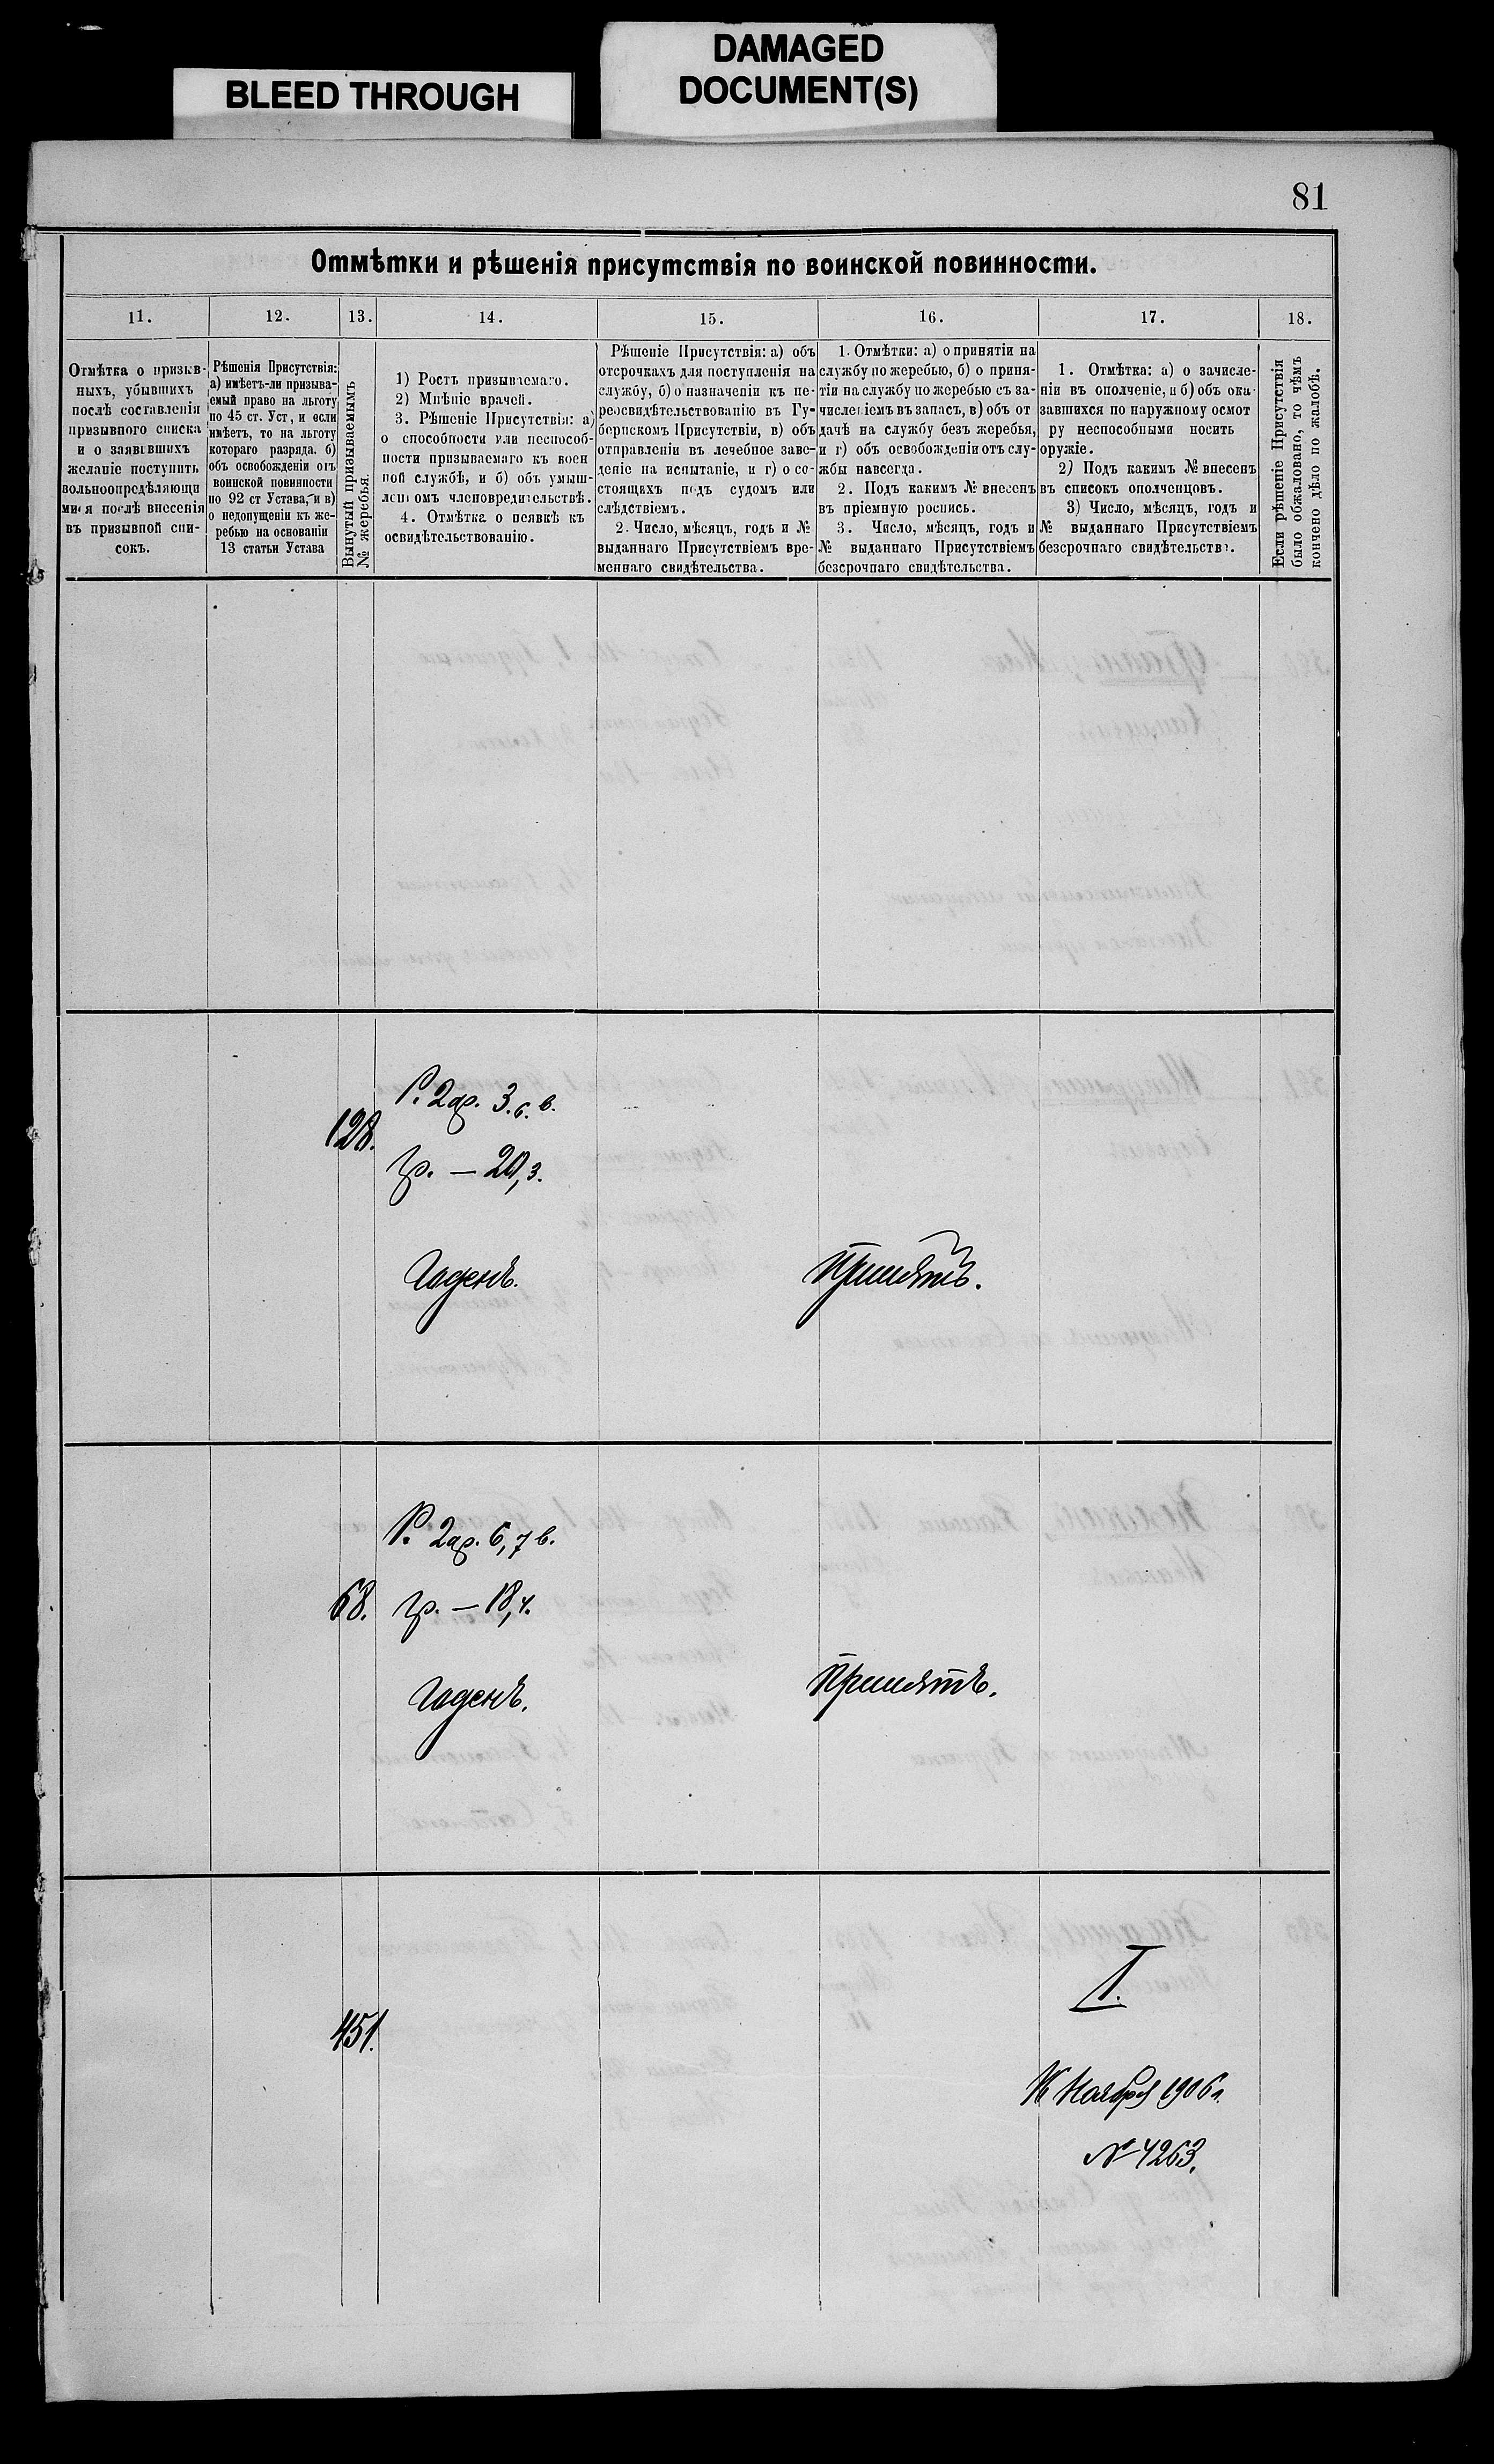 BLEED THROUGH
DAMAGED
DOCUMENT(S)
81
Отмѣтки и рѣшенія присутствія по воинской повинности.
11.
12.
13.
14.
15.
16.
17.
18.
Отмѣтка о призыв-
ныхъ, убывшихъ
послѣ составленія
призывного списка
и о заявившихъ
желаніе поступить
вольноопредѣляющи
мися послѣ внесенія
въ призывной спи-
сокъ.
Рѣшенія Присутствія:
а) имѣетъ-ли призыва-
емый право на льготу
по 45 ст. Уст, и если
имѣетъ, то на льготу
котораго разряда. б)
объ освобожденіи отъ
воинской повинности
по 92 ст Устава, и в)
о недопущеніи къ же-
ребью на основаніи
13 статьи Устава
Вынутый призываемымъ
№ жеребья.
1) Ростъ призываемаго.
2) Мнѣніе врачей.
3. Рѣшеніе Присутствія: а)
о способности или неспособ-
ности призываемаго къ воен
ной службѣ, и б) объ умыш-
леномъ членовредительствѣ.
4. Отмѣтка о неявкѣ къ
освидѣтельствованію.
Рѣшеніе Присутствія: а) объ
отсрочкахъ для поступленія на
службу, б) о назначеніи къ пе-
реосвидѣтельствованію въ Гу-
бернскомъ Присутствіи, в) объ
отправленіи въ лечебное заве-
деніе на испытаніе, и г) о со-
стоящихъ подъ судомъ или
слѣдствіемъ.
2. Число, мѣсяцъ, годъ и №
выданнаго Присутствіемъ вре-
меннаго свидѣтельства.
1. Отмѣтки: а) о принятіи на
службу по жеребью, б) о приня-
тіи на службу по жеребью съ за-
численіемъ въ запасъ, в) объ от
дачѣ на службу безъ жеребья,
и г) объ освобожденіи отъ слу-
жбы навсегда.
2. Подъ какимъ № внесенъ
въ пріемную роспись.
3. Число, мѣсяцъ, годъ и
№ выданнаго Присутствіемъ
безсрочнаго свидѣтельства.
1. Отмѣтка: а) о зачисле-
ніи въ ополченіе, и б) объ ока-
завшихся по наружному осмот
ру неспособными носить
оружіе.
2) Подъ какимъ № внесенъ
въ списокъ ополченцовъ.
3) Число, мѣсяцъ, годъ и
№ выданнаго Присутствіемъ
безсрочнаго свидѣтельства.
Если рѣшеніе Присутствія
было обжаловано, то чѣмъ
кончено дѣло по жалобѣ.
128.
Р. 2 ар. 3. с. в.
гр. — 20,3.
Годенъ.
Принятъ.
68.
Р. 2 ар. 6,7 в.
гр. — 18,4.
Годенъ.
Принятъ.
451.
I.
16 Ноября 1906 г.
№ 4263.